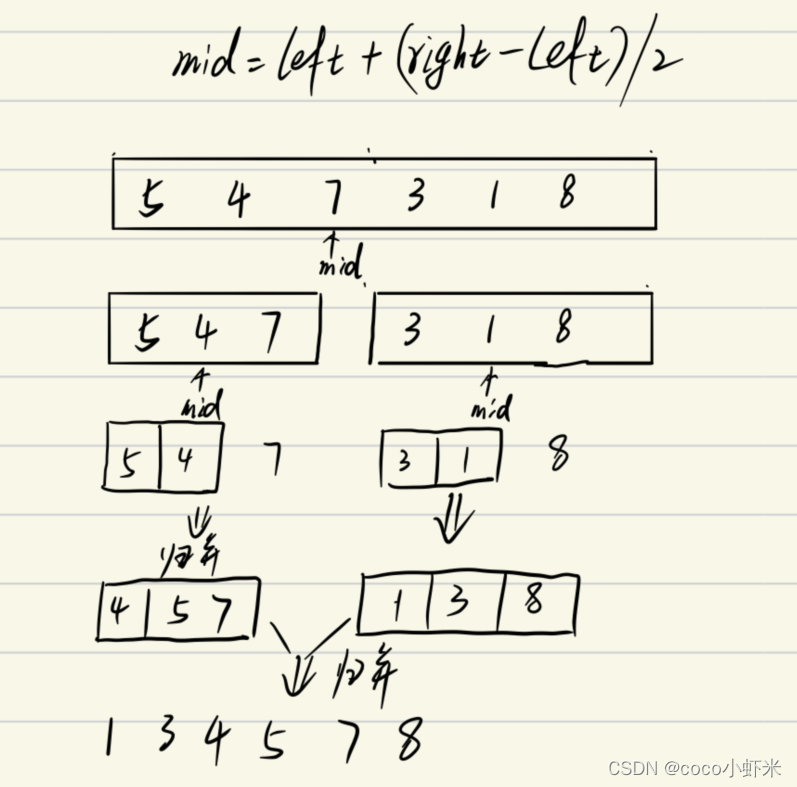 mid = left + (right - left)/2
5 4 7 3 1 8
mid
5 4 7 3 1 8
mid mid
5 4 7 3 1 8
归并
4 5 7 1 3 8
归并
1 3 4 5 7 8
CSDN @coco小虾米